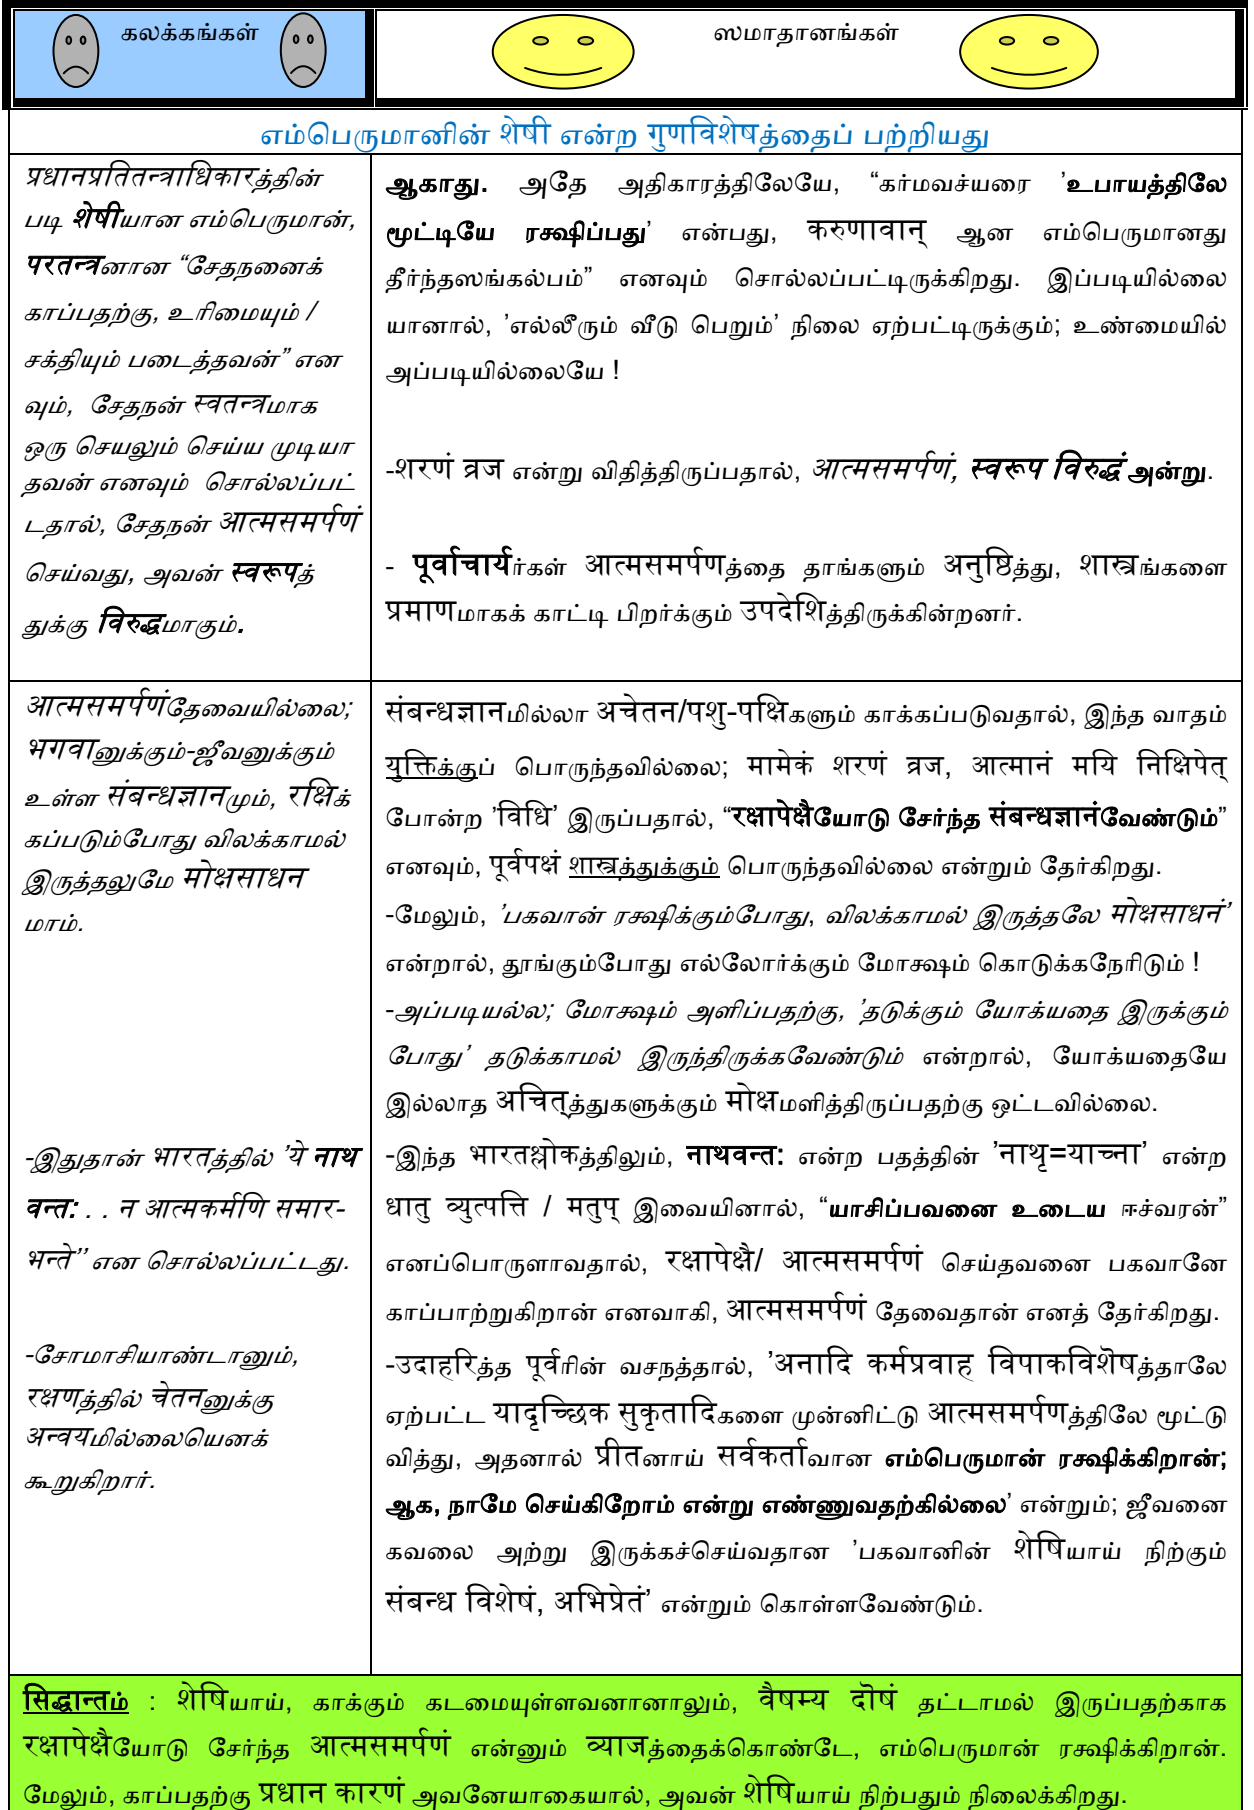 கலக்கங்கள்
ஸமாதானங்கள்
எம்பெருமானின் शेषी என்ற गुणविशेषத்தைப் பற்றியது
प्रधानप्रतितन्त्राधिकारத்தின்
படி शेषीயான எம்பெருமான்,
परतन्त्रனான “சேதநனைக்
காப்பதற்கு, உரிமையும் /
சக்தியும் படைத்தவன்” என
வும், சேதநன் स्वतन्त्रமாக
ஒரு செயலும் செய்ய முடியா
தவன் எனவும் சொல்லப்பட்
டதால், சேதநன் आत्मसमर्पणं
செய்வது, அவன் स्वरूपத்
துக்கு विरुद्धமாகும்.
ஆகாது. அதே அதிகாரத்திலேயே, “கர்மவச்யரை ’உபாயத்திலே
மூட்டியே ரக்ஷிப்பது’ என்பது, करुणावान् ஆன எம்பெருமானது
தீர்ந்தஸங்கல்பம்” எனவும் சொல்லப்பட்டிருக்கிறது. இப்படியில்லை
யானால், ’எல்லீரும் வீடு பெறும்’ நிலை ஏற்பட்டிருக்கும்; உண்மையில்
அப்படியில்லையே !
-शरणं व्रज என்று விதித்திருப்பதால், आत्मसमर्पणं, स्वरूप विरुद्धं அன்று.
- पूर्वाचार्यர்கள் आत्मसमर्पणத்தை தாங்களும் अनुष्ठिத்து, शास्त्रங்களை
प्रमाणமாகக் காட்டி பிறர்க்கும் उपदेशिத்திருக்கின்றனர்.
आत्मसमर्पणंதேவையில்லை;
भगवाனுக்கும்-ஜீவனுக்கும்
உள்ள संबन्धज्ञानமும், रक्षिக்
கப்படும்போது விலக்காமல்
இருத்தலுமே मोक्षसाधन
மாம்.
-இதுதான் भारतத்தில் ’ये नाथ
वन्त: . . न आत्मकर्मणि समार-
भन्ते’’ என சொல்லப்பட்டது.
-சோமாசியாண்டானும்,
रक्षणத்தில் चेतनனுக்கு
अन्वयமில்லையெனக்
கூறுகிறார்.
संबन्धज्ञानமில்லா अचेतन/पशु-पक्षिகளும் காக்கப்படுவதால், இந்த வாதம்
युक्तिக்குப் பொருந்தவில்லை; मामेकं शरणं व्रज, आत्मानं मयि निक्षिपेत्
போன்ற ’विधि’ இருப்பதால், “रक्षापेक्षैயோடு சேர்ந்த संबन्धज्ञानंவேண்டும்”
எனவும், पूर्वपक्षं शास्त्रத்துக்கும் பொருந்தவில்லை என்றும் தேர்கிறது.
-மேலும், ’பகவான் ரக்ஷிக்கும்போது, விலக்காமல் இருத்தலே मोक्षसाधनं’
என்றால், தூங்கும்போது எல்லோர்க்கும் மோக்ஷம் கொடுக்கநேரிடும் !
-அப்படியல்ல; மோக்ஷம் அளிப்பதற்கு, ’தடுக்கும் யோக்யதை இருக்கும்
போது’ தடுக்காமல் இருந்திருக்கவேண்டும் என்றால், யோக்யதையே
இல்லாத अचित्த்துகளுக்கும் मोक्षமளித்திருப்பதற்கு ஒட்டவில்லை.
-இந்த भारतश्लोकத்திலும், नाथवन्त: என்ற பதத்தின் ’नाथृ=याच्ना’ என்ற
धातु व्युत्पत्ति / मतुप् இவையினால், “யாசிப்பவனை உடைய ஈச்வரன்”
எனப்பொருளாவதால், रक्षापेक्षै/ आत्मसमर्पणं செய்தவனை பகவானே
காப்பாற்றுகிறான் எனவாகி, आत्मसमर्पणं தேவைதான் எனத் தேர்கிறது.
-उदाहरिத்த पूर्वரின் வசநத்தால், ’अनादि कर्मप्रवाह विपाकविशॆषத்தாலே
ஏற்பட்ட यादृच्छिक सुकृतादिகளை முன்னிட்டு आत्मसमर्पणத்திலே மூட்டு
வித்து, அதனால் प्रीतனாய் सर्वकर्ताவான எம்பெருமான் ரக்ஷிக்கிறான்;
ஆக, நாமே செய்கிறோம் என்று எண்ணுவதற்கில்லை’ என்றும்; ஜீவனை
கவலை அற்று இருக்கச்செய்வதான ’பகவானின் शेषिயாய் நிற்கும்
संबन्ध विशेषं, अभिप्रेतं’ என்றும் கொள்ளவேண்டும்.
सिद्धान्तம் : शेषिயாய், காக்கும் கடமையுள்ளவனானாலும், वैषम्य दॊषं தட்டாமல் இருப்பதற்காக
रक्षापेक्षैயோடு சேர்ந்த आत्मसमर्पणं என்னும் व्याजத்தைக்கொண்டே, எம்பெருமான் ரக்ஷிக்கிறான்.
மேலும், காப்பதற்கு प्रधान कारणं அவனேயாகையால், அவன் शेषिயாய் நிற்பதும் நிலைக்கிறது.